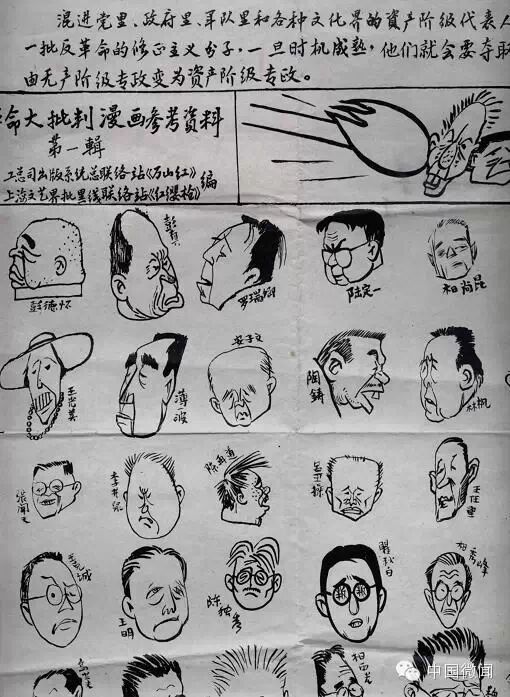 混进党里、政府里、军队里和各种文化界的資产阶级代表人
一批反革命的修正主义分子,一旦时机成熟,他们就会要夺取
由无产阶级专政变为资产阶级专政。
命大批判漫画参考资料
第一輯
工总司出版系統总联络站《万山红》
上海文艺界批黑线联络站《红缨枪》
编
彭德怀
彭真
罗瑞卿
陆定一
杨尚昆
王光美
薄一波
安子文
陶鋳
林枫
張聞天
李井泉
陈再道
王任重
王明
陈独秀
瞿秋白
杨秀峰
中国微闻